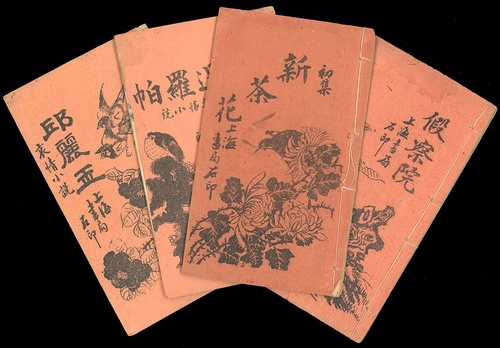 邱麗玉
哀情小說
上海書局
石印
羅帕
小說
初集
新茶花
上海
書局石印
假察院
上海書局
石印